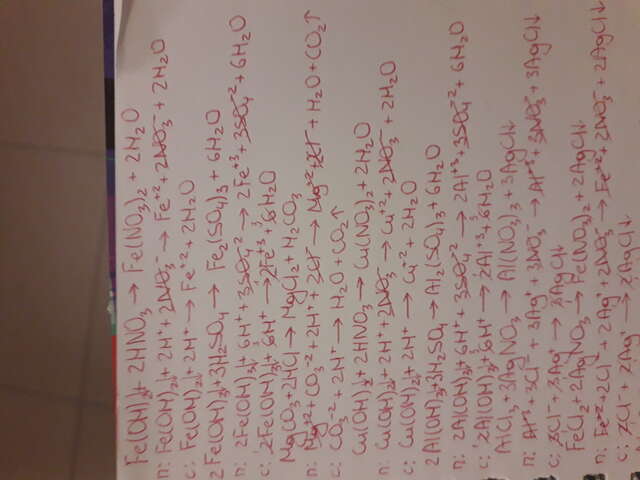 Fe(OH)₂↓ + 2HNO₃ → Fe(NO₃)₂ + 2H₂O
п: Fe(OH)₂↓ + 2H⁺ + 2NO₃⁻ → Fe⁺² + 2NO₃⁻ + 2H₂O
с: Fe(OH)₂↓ + 2H⁺ → Fe⁺² + 2H₂O
2Fe(OH)₃↓ + 3H₂SO₄ → Fe₂(SO₄)₃ + 6H₂O
п: 2Fe(OH)₃↓ + 6H⁺ + 3SO₄⁻² → 2Fe⁺³ + 3SO₄⁻² + 6H₂O
с: ¹2Fe(OH)₃↓ + ³6H⁺ → ¹2Fe⁺³ + ³6H₂O
MgCO₃ + 2HCl → MgCl₂ + H₂CO₃
п: Mg⁺² + CO₃⁻² + 2H⁺ + 2Cl⁻ → Mg⁺² + 2Cl⁻ + H₂O + CO₂↑
с: CO₃⁻² + 2H⁺ → H₂O + CO₂↑
Cu(OH)₂↓ + 2HNO₃ → Cu(NO₃)₂ + 2H₂O
п: Cu(OH)₂↓ + 2H⁺ + 2NO₃⁻ → Cu⁺² + 2NO₃⁻ + 2H₂O
с: Cu(OH)₂↓ + 2H⁺ → Cu⁺² + 2H₂O
2Al(OH)₃↓ + 3H₂SO₄ → Al₂(SO₄)₃ + 6H₂O
п: 2Al(OH)₃↓ + 6H⁺ + 3SO₄⁻² → 2Al⁺³ + 3SO₄⁻² + 6H₂O
с: ¹2Al(OH)₃↓ + ³6H⁺ → ¹2Al⁺³ + ³6H₂O
AlCl₃ + 3AgNO₃ → Al(NO₃)₃ + 3AgCl↓
п: Al⁺³ + 3Cl⁻ + 3Ag⁺ + 3NO₃⁻ → Al⁺³ + 3NO₃⁻ + 3AgCl↓
с: 3Cl⁻ + 3Ag⁺ → 3AgCl↓
FeCl₂ + 2AgNO₃ → Fe(NO₃)₂ + 2AgCl↓
п: Fe⁺² + 2Cl⁻ + 2Ag⁺ + 2NO₃⁻ → Fe⁺² + 2NO₃⁻ + 2AgCl↓
с: 2Cl⁻ + 2Ag⁺ → 2AgCl↓